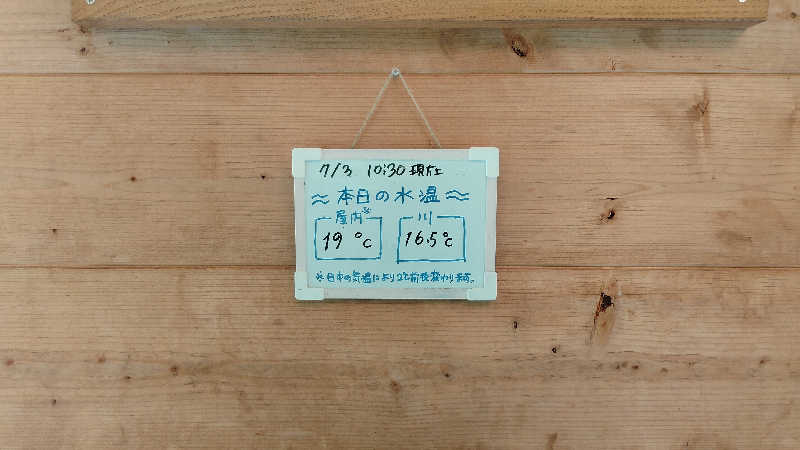 7/3 10:30 現在
≈ 本日の水温 ≈
屋内※ 川
19 ℃ 16.5℃
※日中の気温により2℃前後変わります。